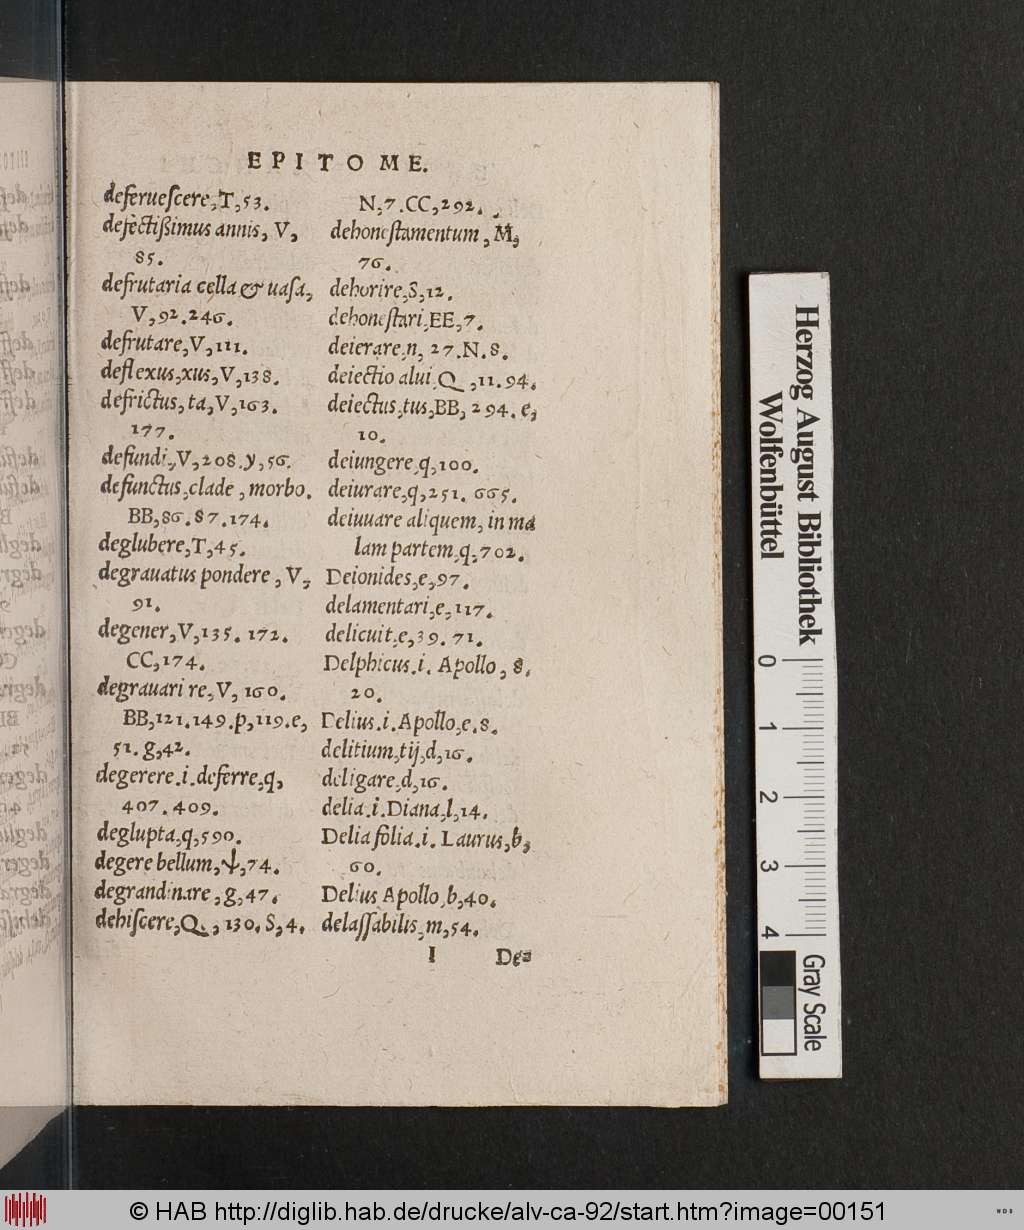 EPITOME.
deferueſcere,T,53.
defectißimus annis, V,
85.
defrutaria cella & uaſa,
V,92.246.
defrutare,V,111.
deflexus,xus,V,138.
defrictus,ta,V,163.
177.
defundi,V,208.y,56.
defunctus,clade, morbo.
BB,86.87.174.
deglubere,T,45.
degrauatus pondere, V,
91.
degener,V,135.172.
CC,174.
degrauari re,V,160.
BB,121.149.p,119.e,
51.g,42.
degerere.i.deferre,q,
407.409.
deglupta,q,590.
degere bellum,ψ,74.
degrandinare,g,47.
dehiſcere,Q,130.S,4.
N,7.CC,292.
dehoneſtamentum, M,
76.
dehorire,S,12.
dehoneſtari,EE,7.
deierare,n,27.N.8.
deiectio alui,Q,11.94.
deiectus,tus,BB,294.e,
10.
deiungere,q,100.
deiurare,q,251.665.
deiuuare aliquem, in ma
lam partem,q,702.
Deionides,e,97.
delamentari,e,117.
delicuit,e,39.71.
Delphicus.i. Apollo, 8.
20.
Delius.i.Apollo,e.8.
delitium,tij,d,16.
deligare,d,16.
delia.i.Diana,l,14.
Delia folia.i. Laurus,b,
60.
Delius Apollo,b,40.
delaſſabilis,m,54.
I De=
Herzog August Bibliothek
Wolfenbüttel
0 1 2 3 4
Gray Scale
© HAB http://diglib.hab.de/drucke/alv-ca-92/start.htm?image=00151
WDB